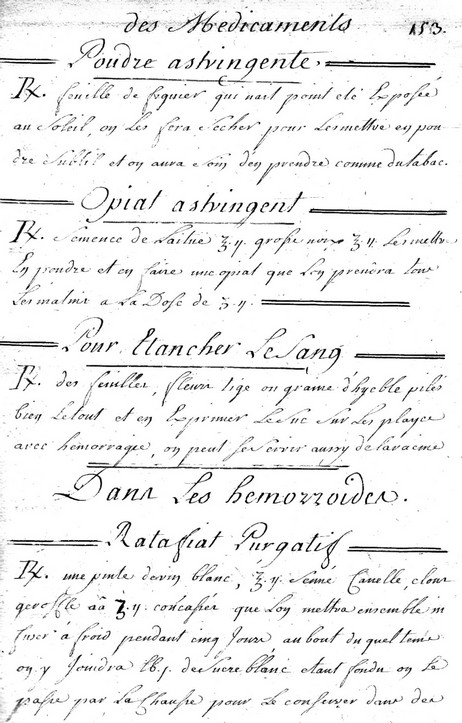 des Medicaments 153.
Poudre astringente.
℞. feuille de figuier qui nait point eté Exposée
au Soleil, on Les fera Secher pour Lesmettre en pou
dre Subtil et on aura Soin den prendre comme dutabac.
Opiat astringent
℞. Semence de Laitue ʒ.ij. grosse noix ʒ.ij. Lesmettre
En poudre et en faire une opiat que Lon prendra tous
Lesmatins a La Dose de ʒ.ij.
Pour Etancher Le Sang
℞. des feuilles, fleurs tige ou graine d'hyeble pilés
bien Letout et en Exprimer Le Suc Sur Les playes
avec hémorragie, on peut Se Servir aussy de laracine
Dans Les hemorroides.
Ratafiat Purgatif
℞. une pinte devin blanc, ʒ.ij. Senné Canelle, clous
gerofle aā ʒ.ij. concassés que Lon mettra ensemble in
fuser a froid pendant cinq Jours au bout du quel tems
on y Joindra ℔j. de Sucre blanc etant fondu on Le
passe par La Chausse pour Le conserver dans des